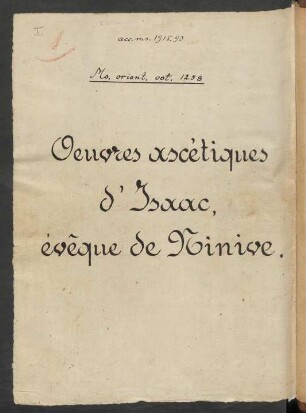 I
acc. ms. 1918.90
Ms. orient. oct. 1258
Oeuvres ascétiques
d'Isaac,
évêque de Ninive.